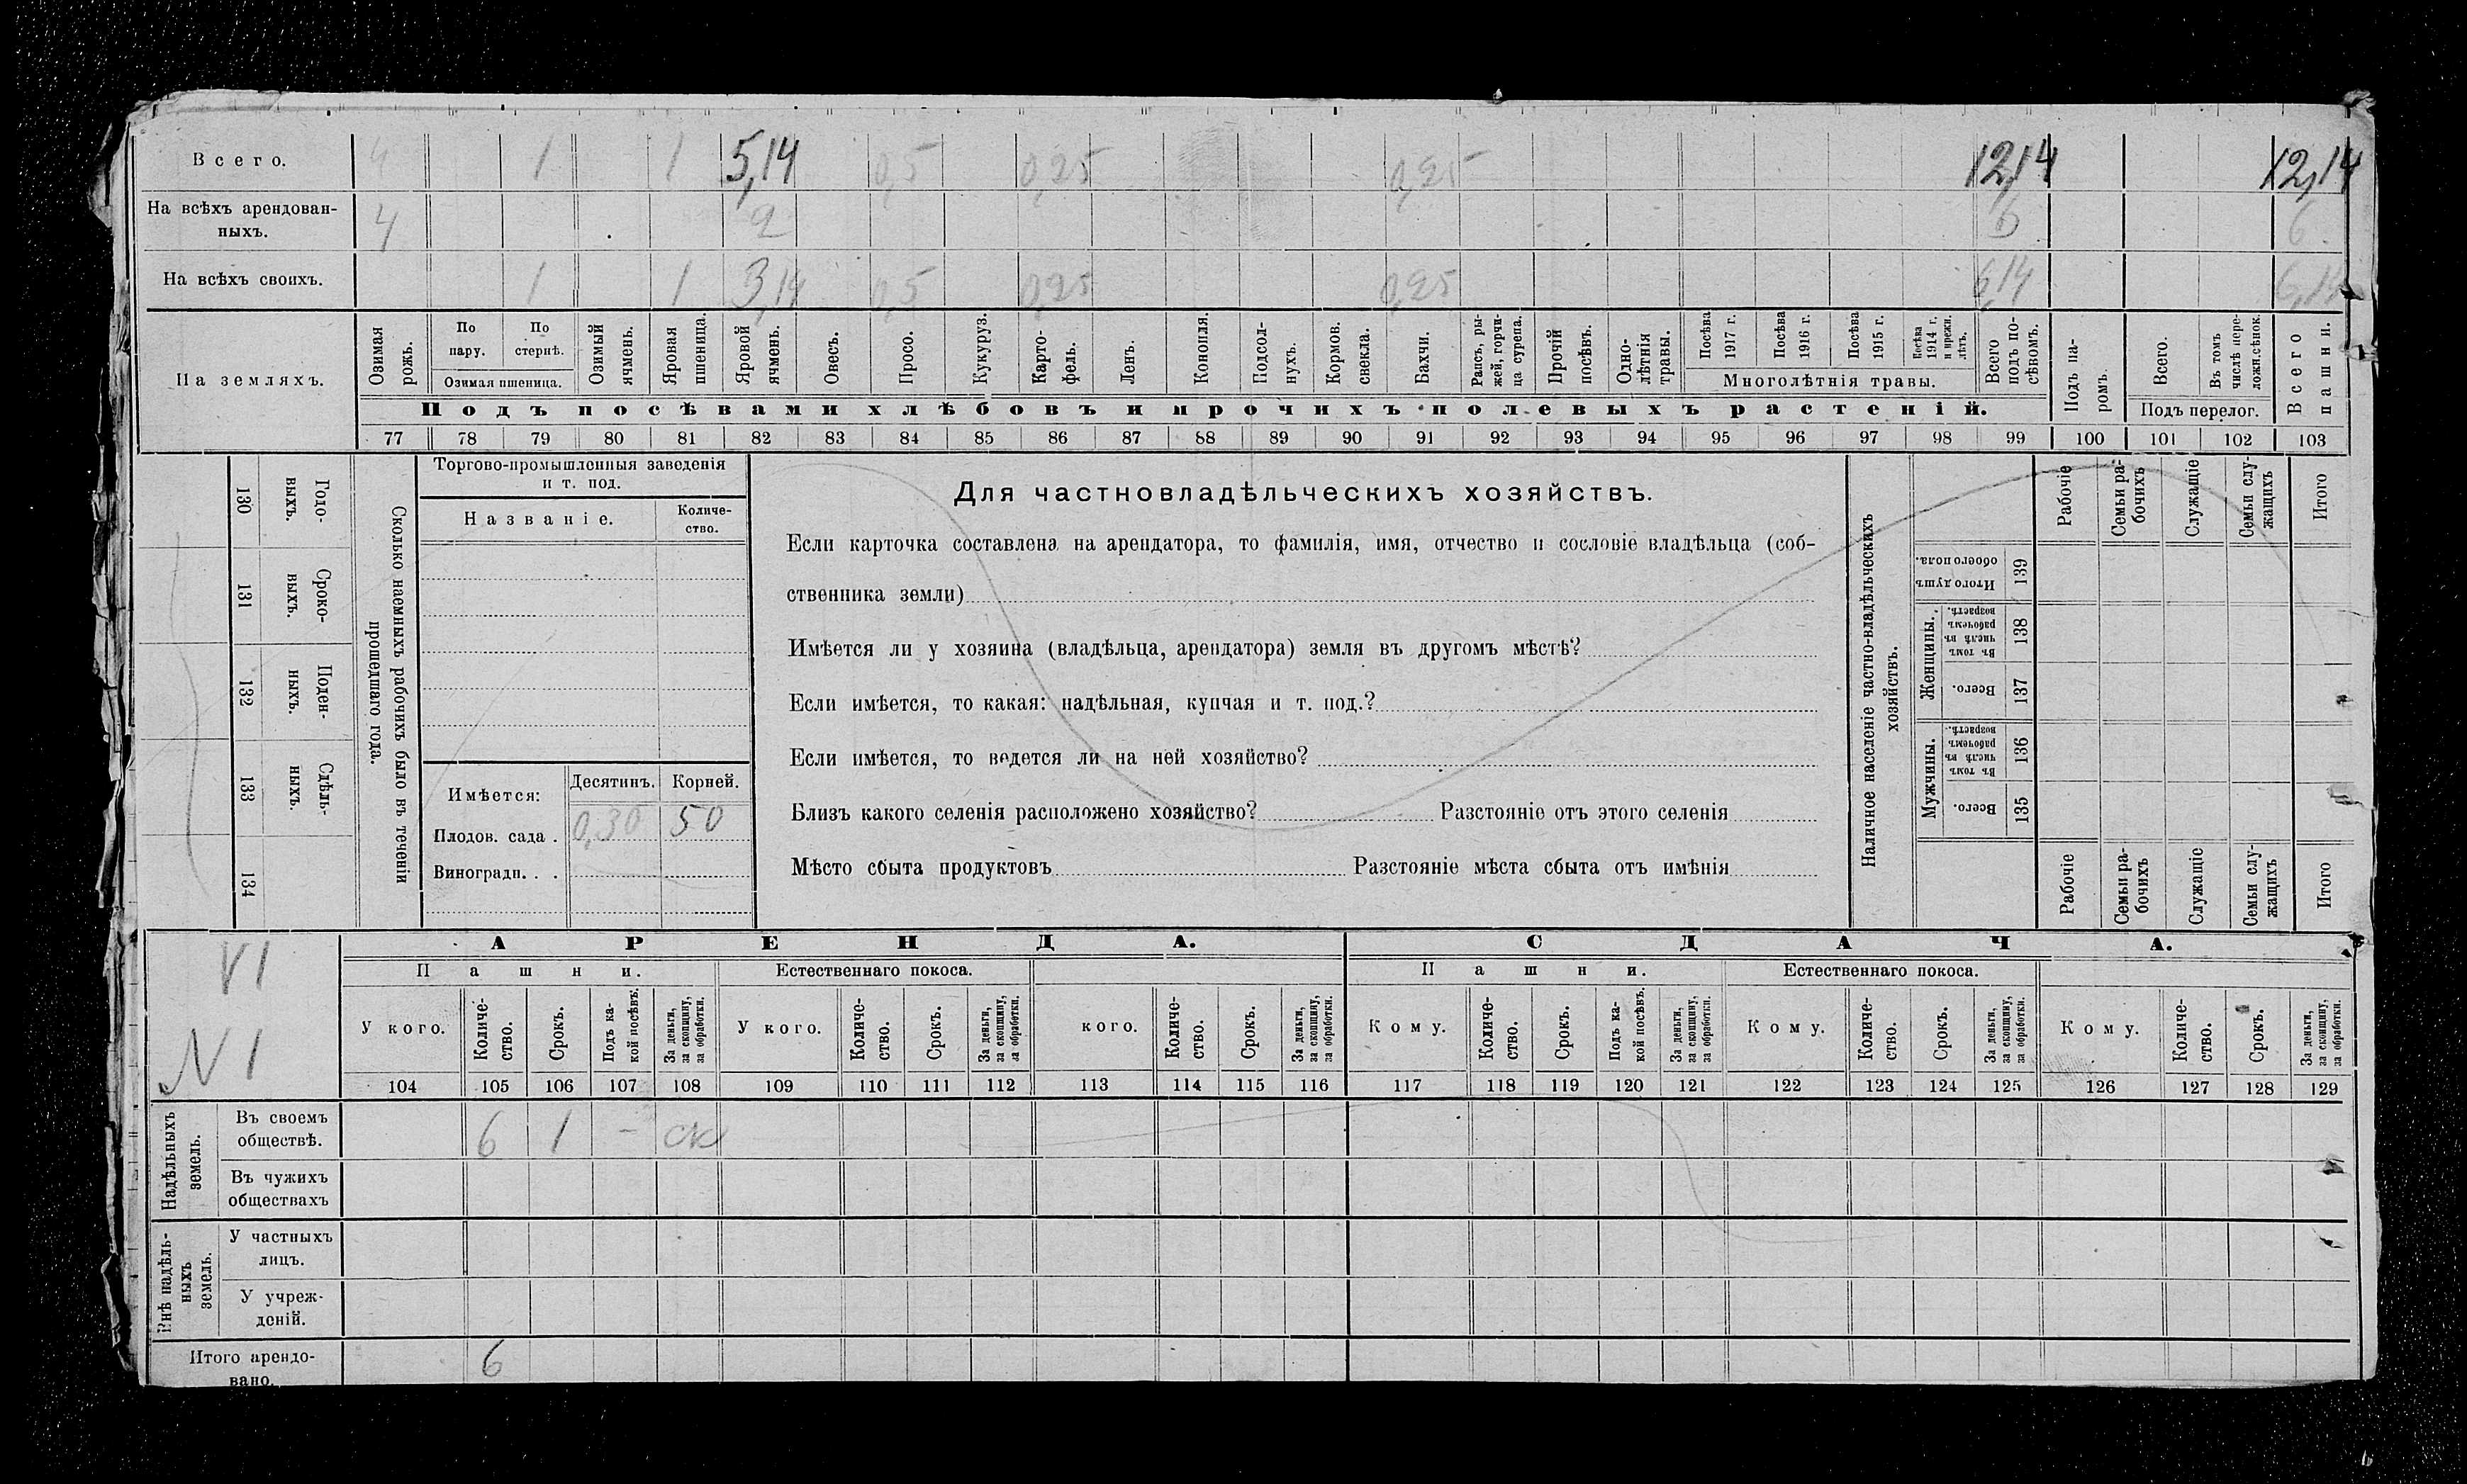 Всего. 4 1 1 5,14 0,5 0,25 0,25 12,14 12,14
На всѣхъ арендован-
ныхъ. 4 2 6 6
На всѣхъ своихъ. 1 1 3,14 0,5 0,25 0,25 6,14 6,14
На земляхъ.
Озимая рожь.
По пару.
По стернѣ.
Озимая пшеница.
Озимый ячмень.
Яровая пшеница.
Яровой ячмень.
Овесъ.
Просо.
Кукуруз.
Карто-
фель.
Ленъ.
Конопля.
Подсол-
нухъ.
Кормов. свекла.
Бахчи.
Рапсъ, ры-
жей, горчи-
ца сурепа.
Прочій посѣвъ.
Одно-
лѣтнія
травы.
Посѣва 1917 г.
Посѣва 1916 г.
Посѣва 1915 г.
Посѣва 1914 г. и прежн. лѣтъ.
Многолѣтнія травы.
Всего подъ по-
сѣвомъ.
Подъ па-
ромъ.
Всего.
Въ томъ числѣ пере-
ложн.сѣнок.
Подъ перелог.
Всего пашни.
Подъ посѣвами хлѣбовъ и прочихъ полевыхъ растеній.
77 78 79 80 81 82 83 84 85 86 87 88 89 90 91 92 93 94 95 96 97 98 99 100 101 102 103
130 Годо-
выхъ.
131 Сроко-
выхъ.
132 Поден-
ныхъ.
133 Сдѣль-
ныхъ.
134
Сколько наемныхъ рабочихъ было въ теченіи
прошедшаго года.
Торгово-промышленныя заведенія
и т. под.
Названіе.
Количе-
ство.
Имѣется: Десятинъ. Корней.
Плодов. сада . 0,30 50
Виноградн. . .
Для частновладѣльческихъ хозяйствъ.
Если карточка составлена на арендатора, то фамилія, имя, отчество и сословіе владѣльца (соб-
ственника земли)
Имѣется ли у хозяина (владѣльца, арендатора) земля въ другомъ мѣстѣ?
Если имѣется, то какая: надѣльная, купчая и т. под.?
Если имѣется, то ведется ли на ней хозяйство?
Близъ какого селенія расположено хозяйство? Разстояніе отъ этого селенія
Мѣсто сбыта продуктовъ Разстояніе мѣста сбыта отъ имѣнія
Наличное населеніе частно-владѣльческихъ
хозяйствъ.
Рабочіе
Семьи ра-
бочихъ
Служащіе
Семьи слу-
жащихъ
Итого
Итого душъ обоего пола. 139
Женщины.
Въ томъ числѣ въ рабочемъ возрастѣ. 138
Всего. 137
Мужчины.
Въ томъ числѣ въ рабочемъ возрастѣ. 136
Всего. 135
Рабочіе
Семьи ра-
бочихъ
Служащіе
Семьи слу-
жащихъ
Итого
VI
N 1
АРЕНДА. СДАЧА.
Пашни. Естественнаго покоса. Пашни. Естественнаго покоса.
У кого.
Количе-
ство.
Срокъ.
Подъ ка-
кой посѣвъ.
За деньги,
за скопщину,
за обработки.
У кого.
Количе-
ство.
Срокъ.
За деньги,
за скопщину,
за обработки.
кого.
Количе-
ство.
Срокъ.
За деньги,
за скопщину,
за обработки.
Кому.
Количе-
ство.
Срокъ.
Подъ ка-
кой посѣвъ.
За деньги,
за скопщину,
за обработки.
Кому.
Количе-
ство.
Срокъ.
За деньги,
за скопщину,
за обработки.
Кому.
Количе-
ство.
Срокъ.
За деньги,
за скопщину,
за обработки.
104 105 106 107 108 109 110 111 112 113 114 115 116 117 118 119 120 121 122 123 124 125 126 127 128 129
Надѣльныхъ
земель.
Въ своемъ
обществѣ. 6 1 - ск
Въ чужихъ
обществахъ
внѣ надѣль-
ныхъ
земель.
У частныхъ
лицъ.
У учреж-
деній.
Итого арендо-
вано. 6